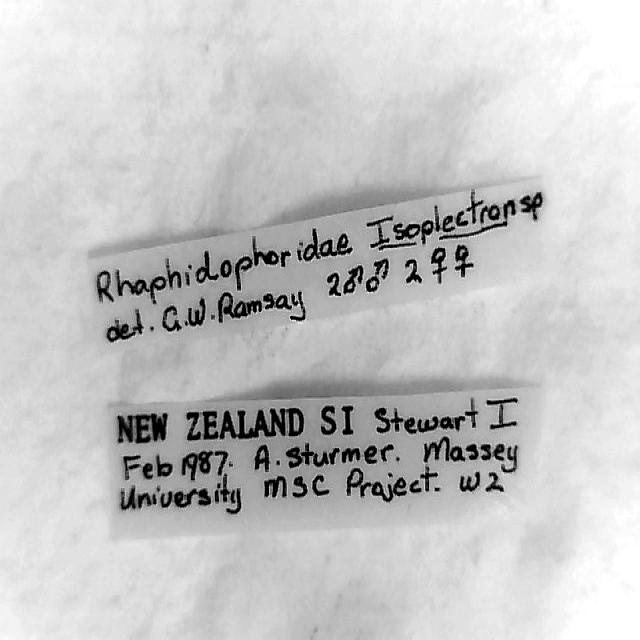 Rhaphidophoridae Isoplectron sp
det. G.W. Ramsay 2♂♂ 2♀♀
NEW ZEALAND SI Stewart I
Feb 1987. A. Sturmer. Massey
University MSC Project. W2